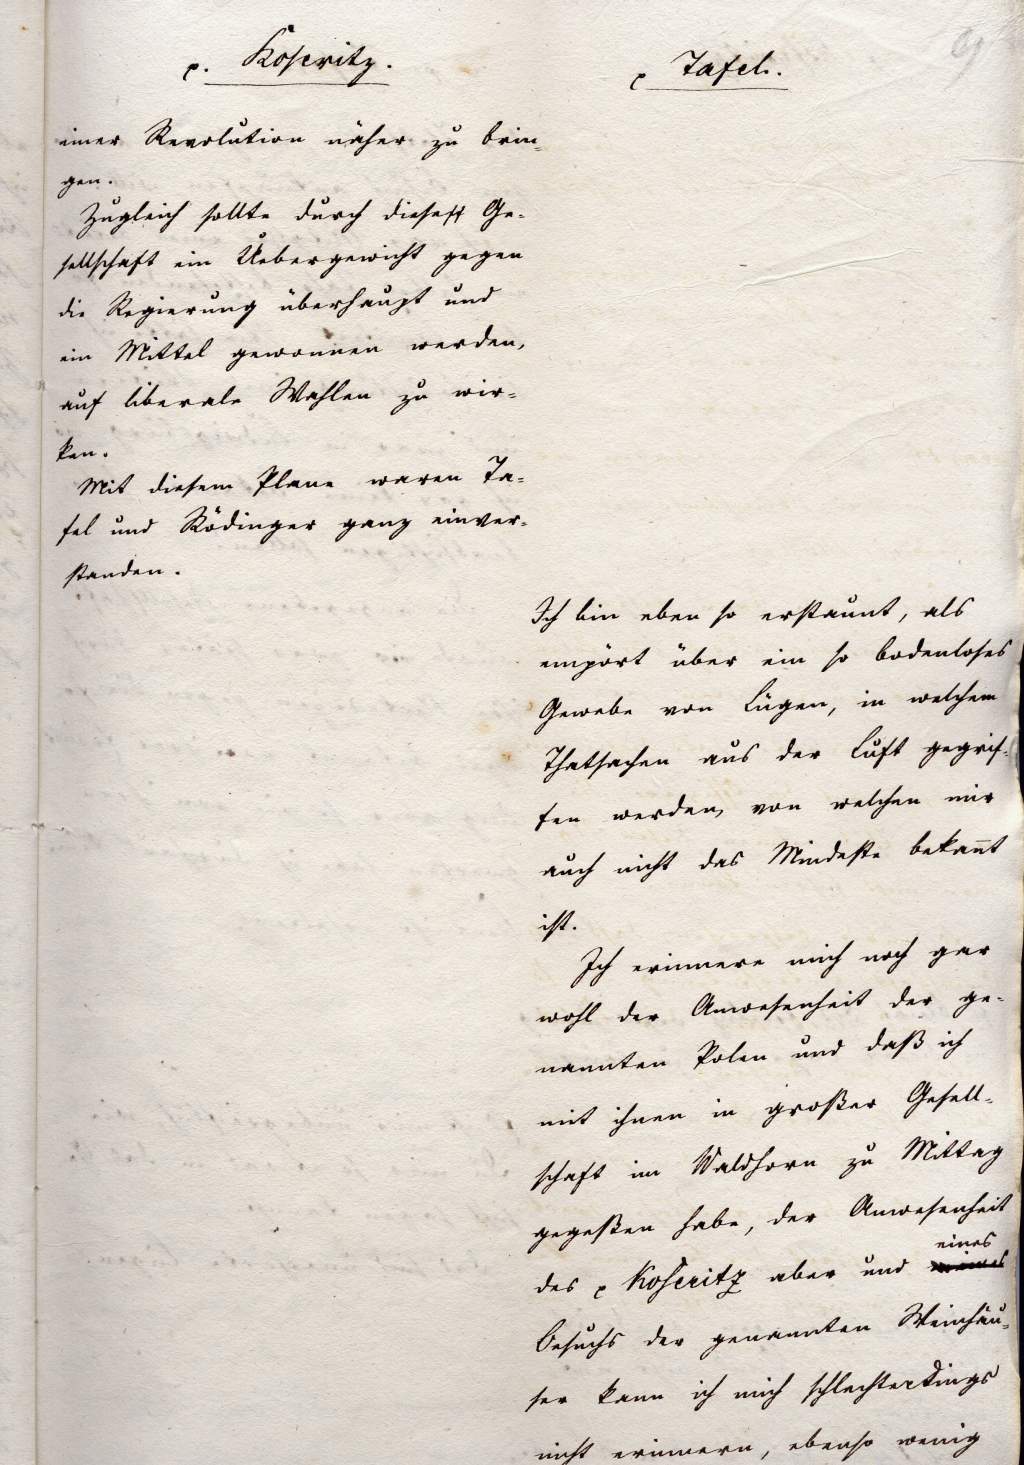 p. Koseritz.
einer Revolution näher zu brin-
gen.
Zugleich sollte durch diese Ge-
sellschaft ein Uebergewicht gegen
die Regierung überhaupt und
ein Mittel gewonnen werden,
auf liberale Wahlen zu wir-
ken.
Mit diesem Plane waren Ta-
fel und Rödinger ganz einver-
standen.
p Tafel.
Ich bin eben so erstaunt, als
empört über ein so bodenloses
Gewebe von Lügen, in welchem
Thatsachen aus der Luft gegrif-
fen werden, von welchen mir
auch nicht das Mindeste bekan̄t
ist.
Ich erinnere mich noch gar
wohl der Anwesenheit der ge-
nannten Polen und daß ich
mit ihnen in großer Gesell-
schaft im Waldhorn zu Mittag
gegeßen habe, der Anwesenheit
des p Koseritz aber und eines
Besuchs der genannten Weinhäu-
ser kann ich mich schlechterdings
nicht erinnern, ebenso wenig